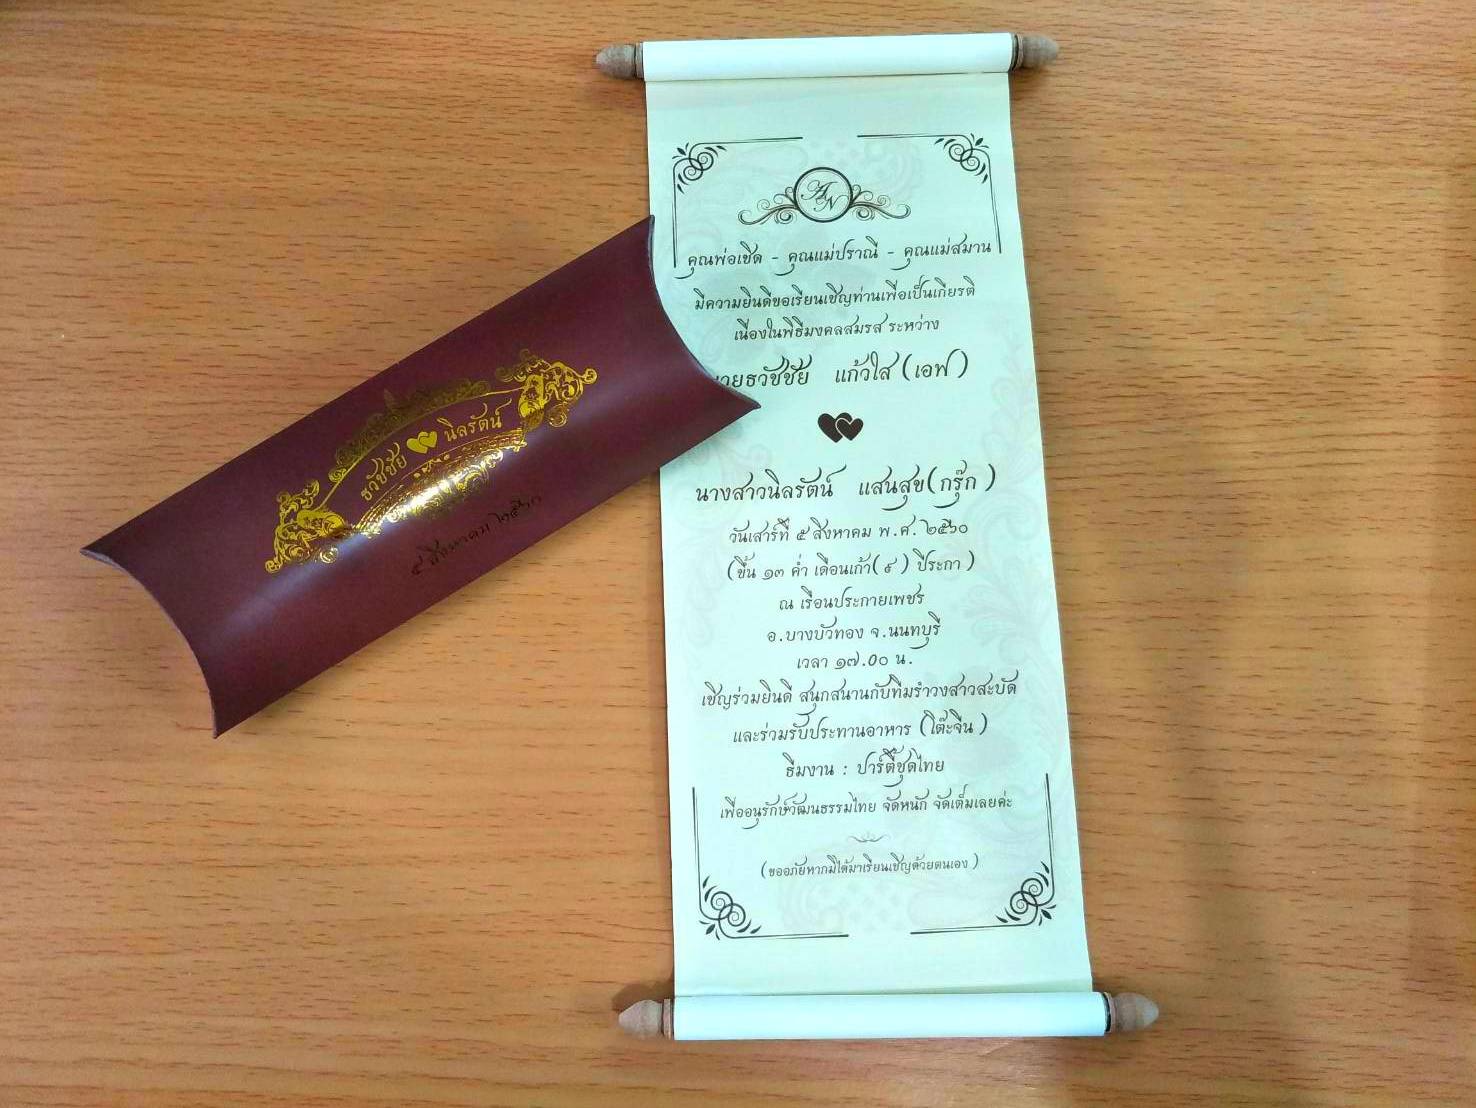 ธวัชชัย นิลรัตน์
๕ สิงหาคม ๒๕๖๐
AN
คุณพ่อเชิด - คุณแม่ปราณี - คุณแม่สมาน
มีความยินดีขอเรียนเชิญท่านเพื่อเป็นเกียรติ
เนื่องในพิธีมงคลสมรส ระหว่าง
นายธวัชชัย แก้วใส (เอฟ)
นางสาวนิลรัตน์ แสนสุข(กรุ๊ก )
วันเสาร์ที่ ๕ สิงหาคม พ.ศ. ๒๕๖๐
(ขึ้น ๑๓ ค่ำ เดือนเก้า(๙ ) ปีระกา )
ณ เรือนประกายเพชร
อ.บางบัวทอง จ.นนทบุรี
เวลา ๑๗.๐๐ น.
เชิญร่วมยินดี สนุกสนานกับทีมรำวงสาวสะบัด
และร่วมรับประทานอาหาร (โต๊ะจีน )
ธีมงาน : ปาร์ตี้ชุดไทย
เพื่ออนุรักษ์วัฒนธรรมไทย จัดหนัก จัดเต็มเลยค่ะ
(ขออภัยหากมิได้มาเรียนเชิญด้วยตนเอง )